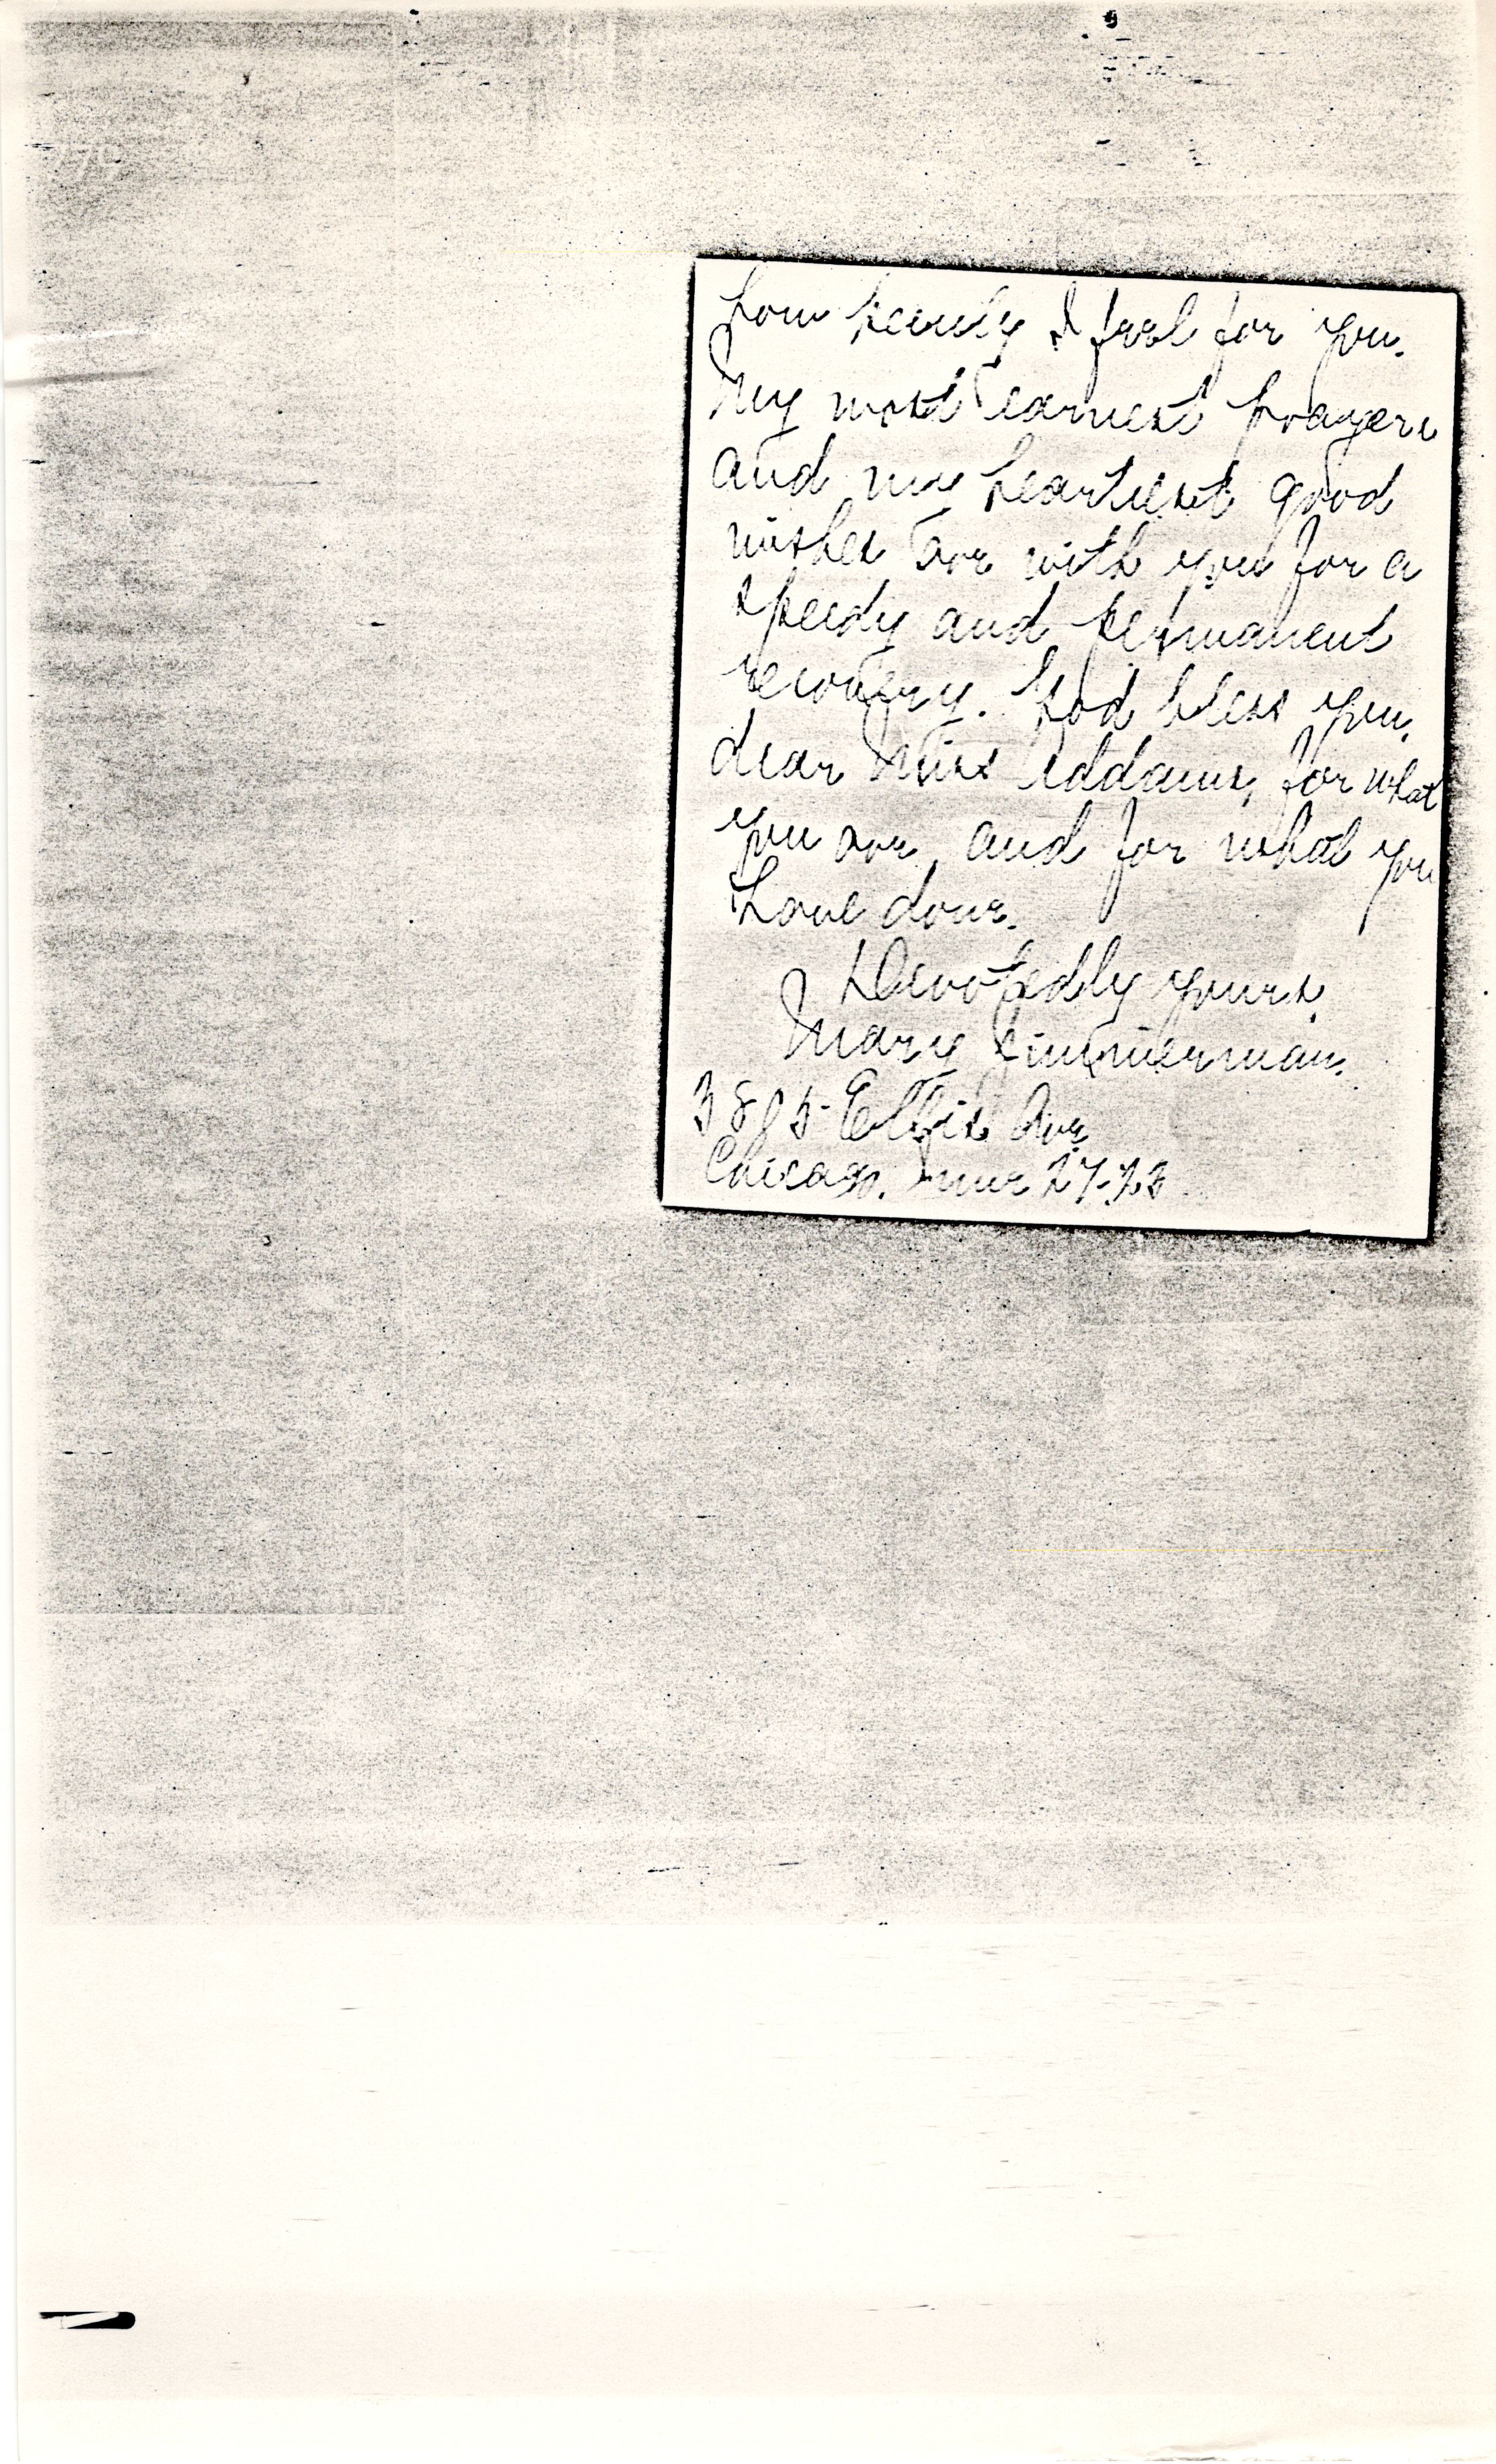 how keenly I feel for you.
My most earnest prayers
and my heartiest good
wishes are with you for a
speedy and permanent
recovery. God bless you,
dear Miss Addams, for what
you are, and for what you
have done.
Devotedly yours,
Mary Zimmerman.
Ellis Ave
Chicago. June 27-23